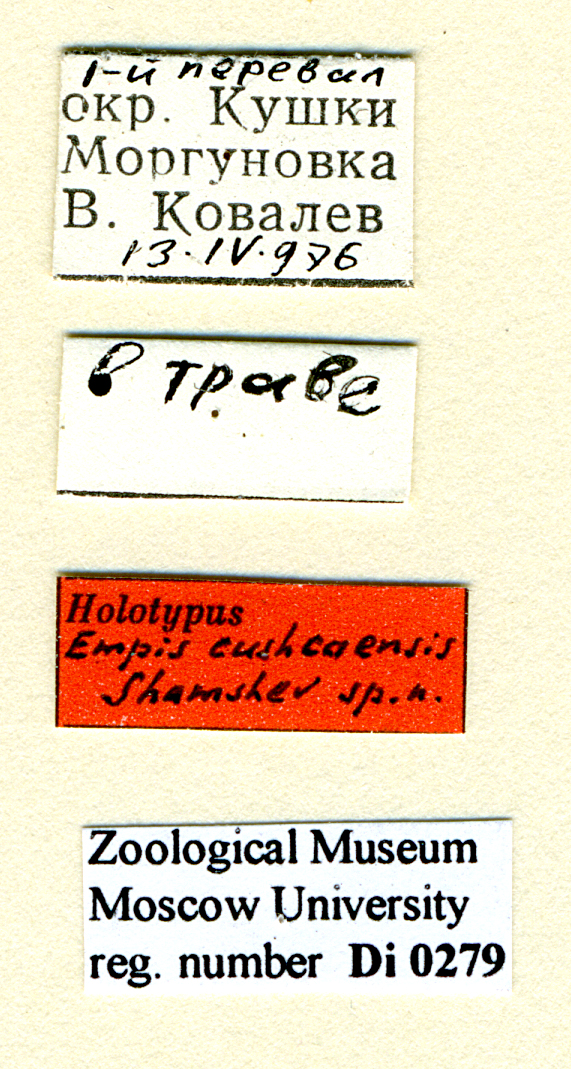 1-й перевал
окр. Кушки
Моргуновка
В. Ковалев
13.IV.976
в траве
Holotypus
Empis cushcaensis
Shamshev sp.n.
Zoological Museum
Moscow University
reg. number Di 0279